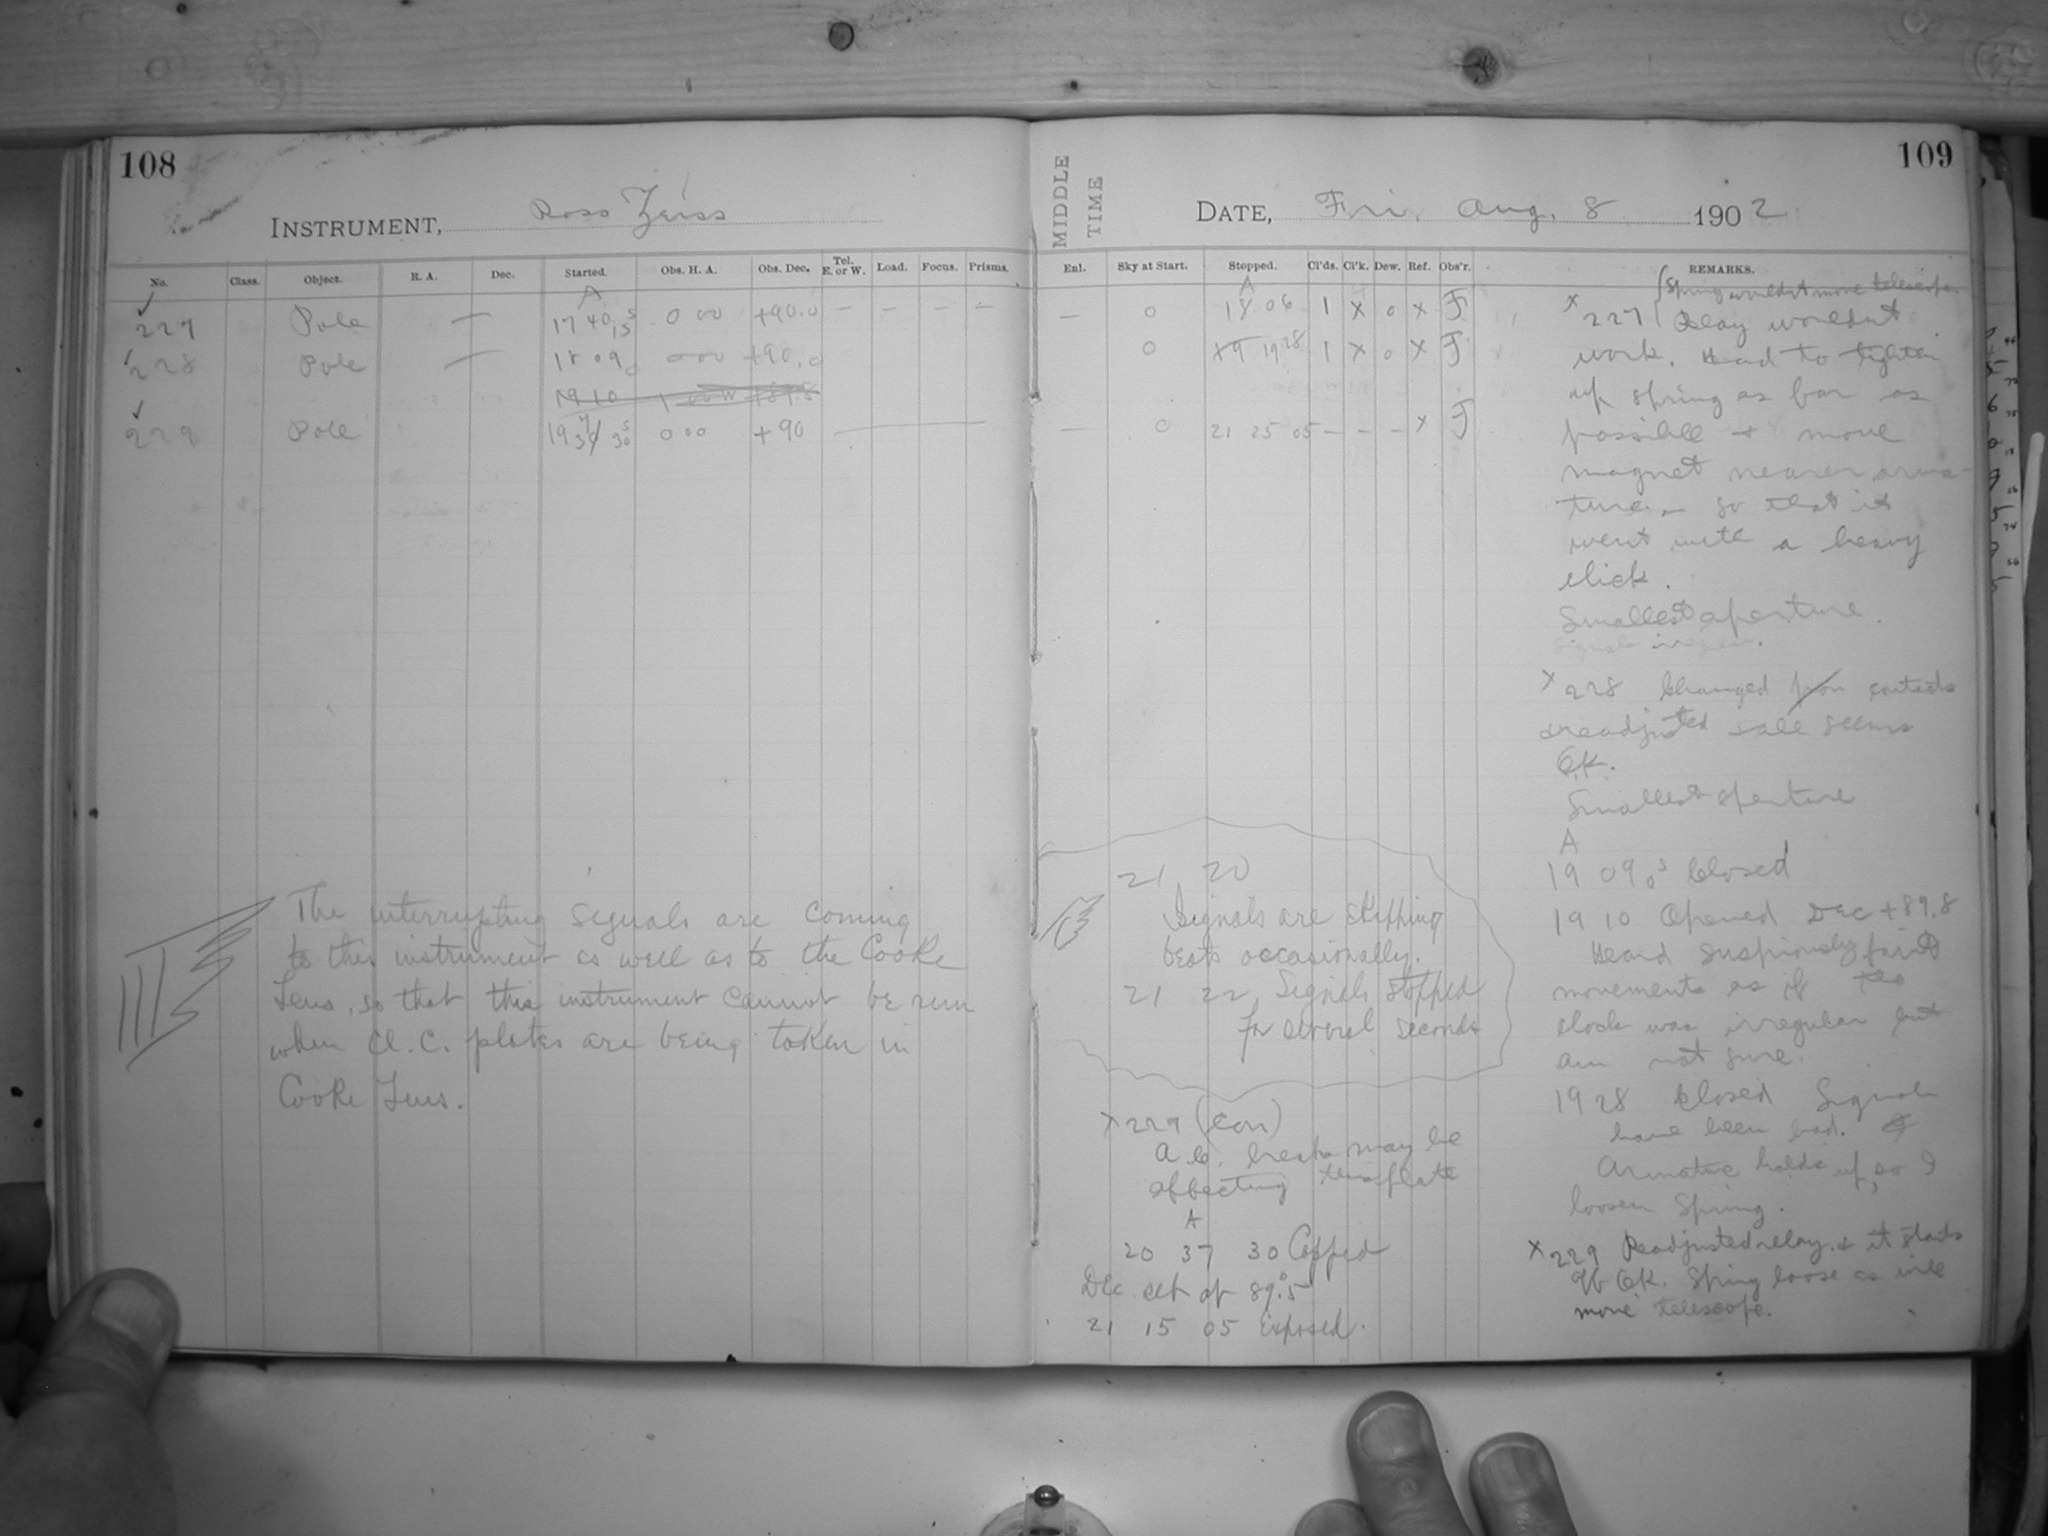 108
INSTRUMENT, Ross Zeiss
No. Class. Object. R. A. Dec. Started. Obs. H. A. Obs. Dec. Tel. E. or W. Load. Focus. Prisms.
A
227 Pole — 17 40 15 s 0 00 +90.0 — — — —
228 Pole — 18 09 0 0 00 +90.0
19 10
229 Pole 19 30 s 0 00 +90
The interrupting signals are coming
to this instrument as well as to the Cooke
Lens, so that this instrument cannot be run
when Cl. C. plates are being taken in
Cooke Lens.
109
MIDDLE TIME
DATE, Fri. Aug. 8 1902
Enl. Sky at Start. Stopped. Cl'ds. Cl'k. Dew. Ref. Obs'r. REMARKS.
A
— 0 18 06 1 x 0 x F
0 19 28 1 x 0 x F
— 0 21 25 05 — — — x F
Spring wouldnt move telescope
x 227 Relay wouldnt
work. Had to tighten
up spring as far as
possible + move
magnet nearer arma-
ture so that it
went with a heavy
click.
Smallest aperture.
Signals irregular.
x 228 Changed contacts
+ readjusted + all seems
OK.
Smallest aperture
A
19 09 0 s Closed
19 10 Opened Dec +89.8
Heard suspiciously faint
movements as if the
clock was irregular but
am not sure.
19 28 Closed Signals
have been bad.
Armature holds up, so I
loosen spring.
x 229 Readjusted relay + it starts
off OK. Spring loose as will
move telescope.
21 20
Signals are skipping
beats occasionally.
21 22 Signals stopped
for several seconds
x 229 (con)
breaks may be
affecting this plate
A
20 37 30 Capped
Dec set at 89°.5
21 15 05 Exposed.